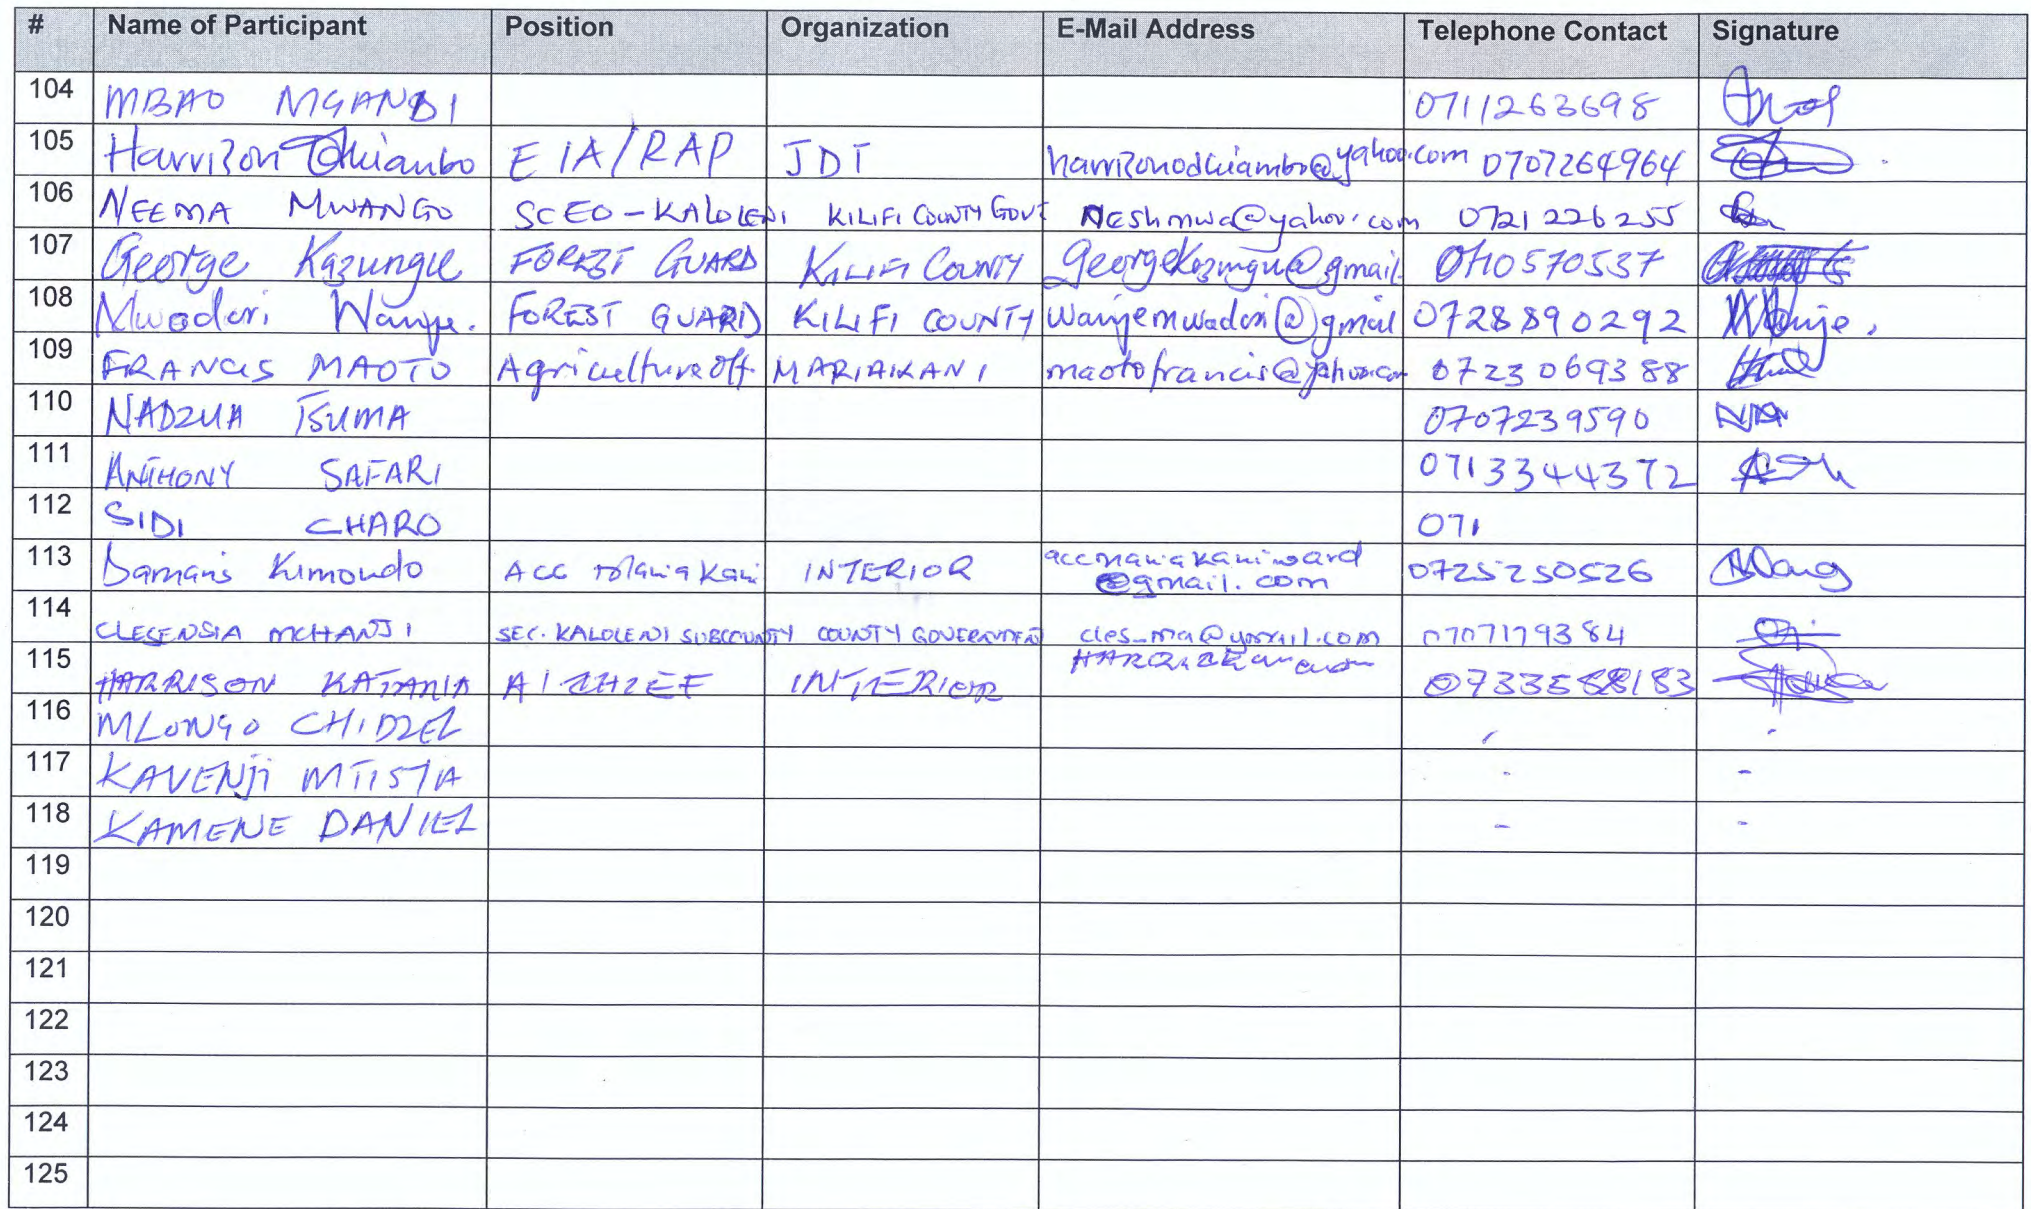 # Name of Participant Position Organization E-Mail Address Telephone Contact Signature
104 MBAO MGANDI 0711263698
105 Harrizon Odhiambo EIA/RAP JDT harrizonodhiambo@yahoo.com 0707264964
106 NEEMA MWANGO SCEO-KALOLENI KILIFI COUNTY GOVT Neshmwa@yahoo.com 0721226255
107 George Kazungu FOREST GUARD KILIFI COUNTY Georgekazungu@gmail 0710570537
108 Mwadori Wanje. FOREST GUARD KILIFI COUNTY wanjemwadori@gmail 0728890292 Wanje.
109 FRANCIS MAOTO Agriculture off. MARIAKANI maotofrancis@yahoo.com 0723069388
110 NADZUA TSUMA 0707239590
111 ANTHONY SAFARI 0713344372
112 SIDI CHARO 071
113 Damaris Kimondo ACC Mariakani INTERIOR accmariakaniward
@gmail.com 0725250526
114 CLESENSIA MCHANJI SEC. KALOLENI SUBCOUNTY COUNTY GOVERNMENT cles_ma@ymail.com 0707179384
115 HARRISON KATANA INTERIOR 0733588183
116 MLONGO CHIDZEL - -
117 KAVENJI MTISYA - -
118 KAMENE DANIEL - -
119
120
121
122
123
124
125